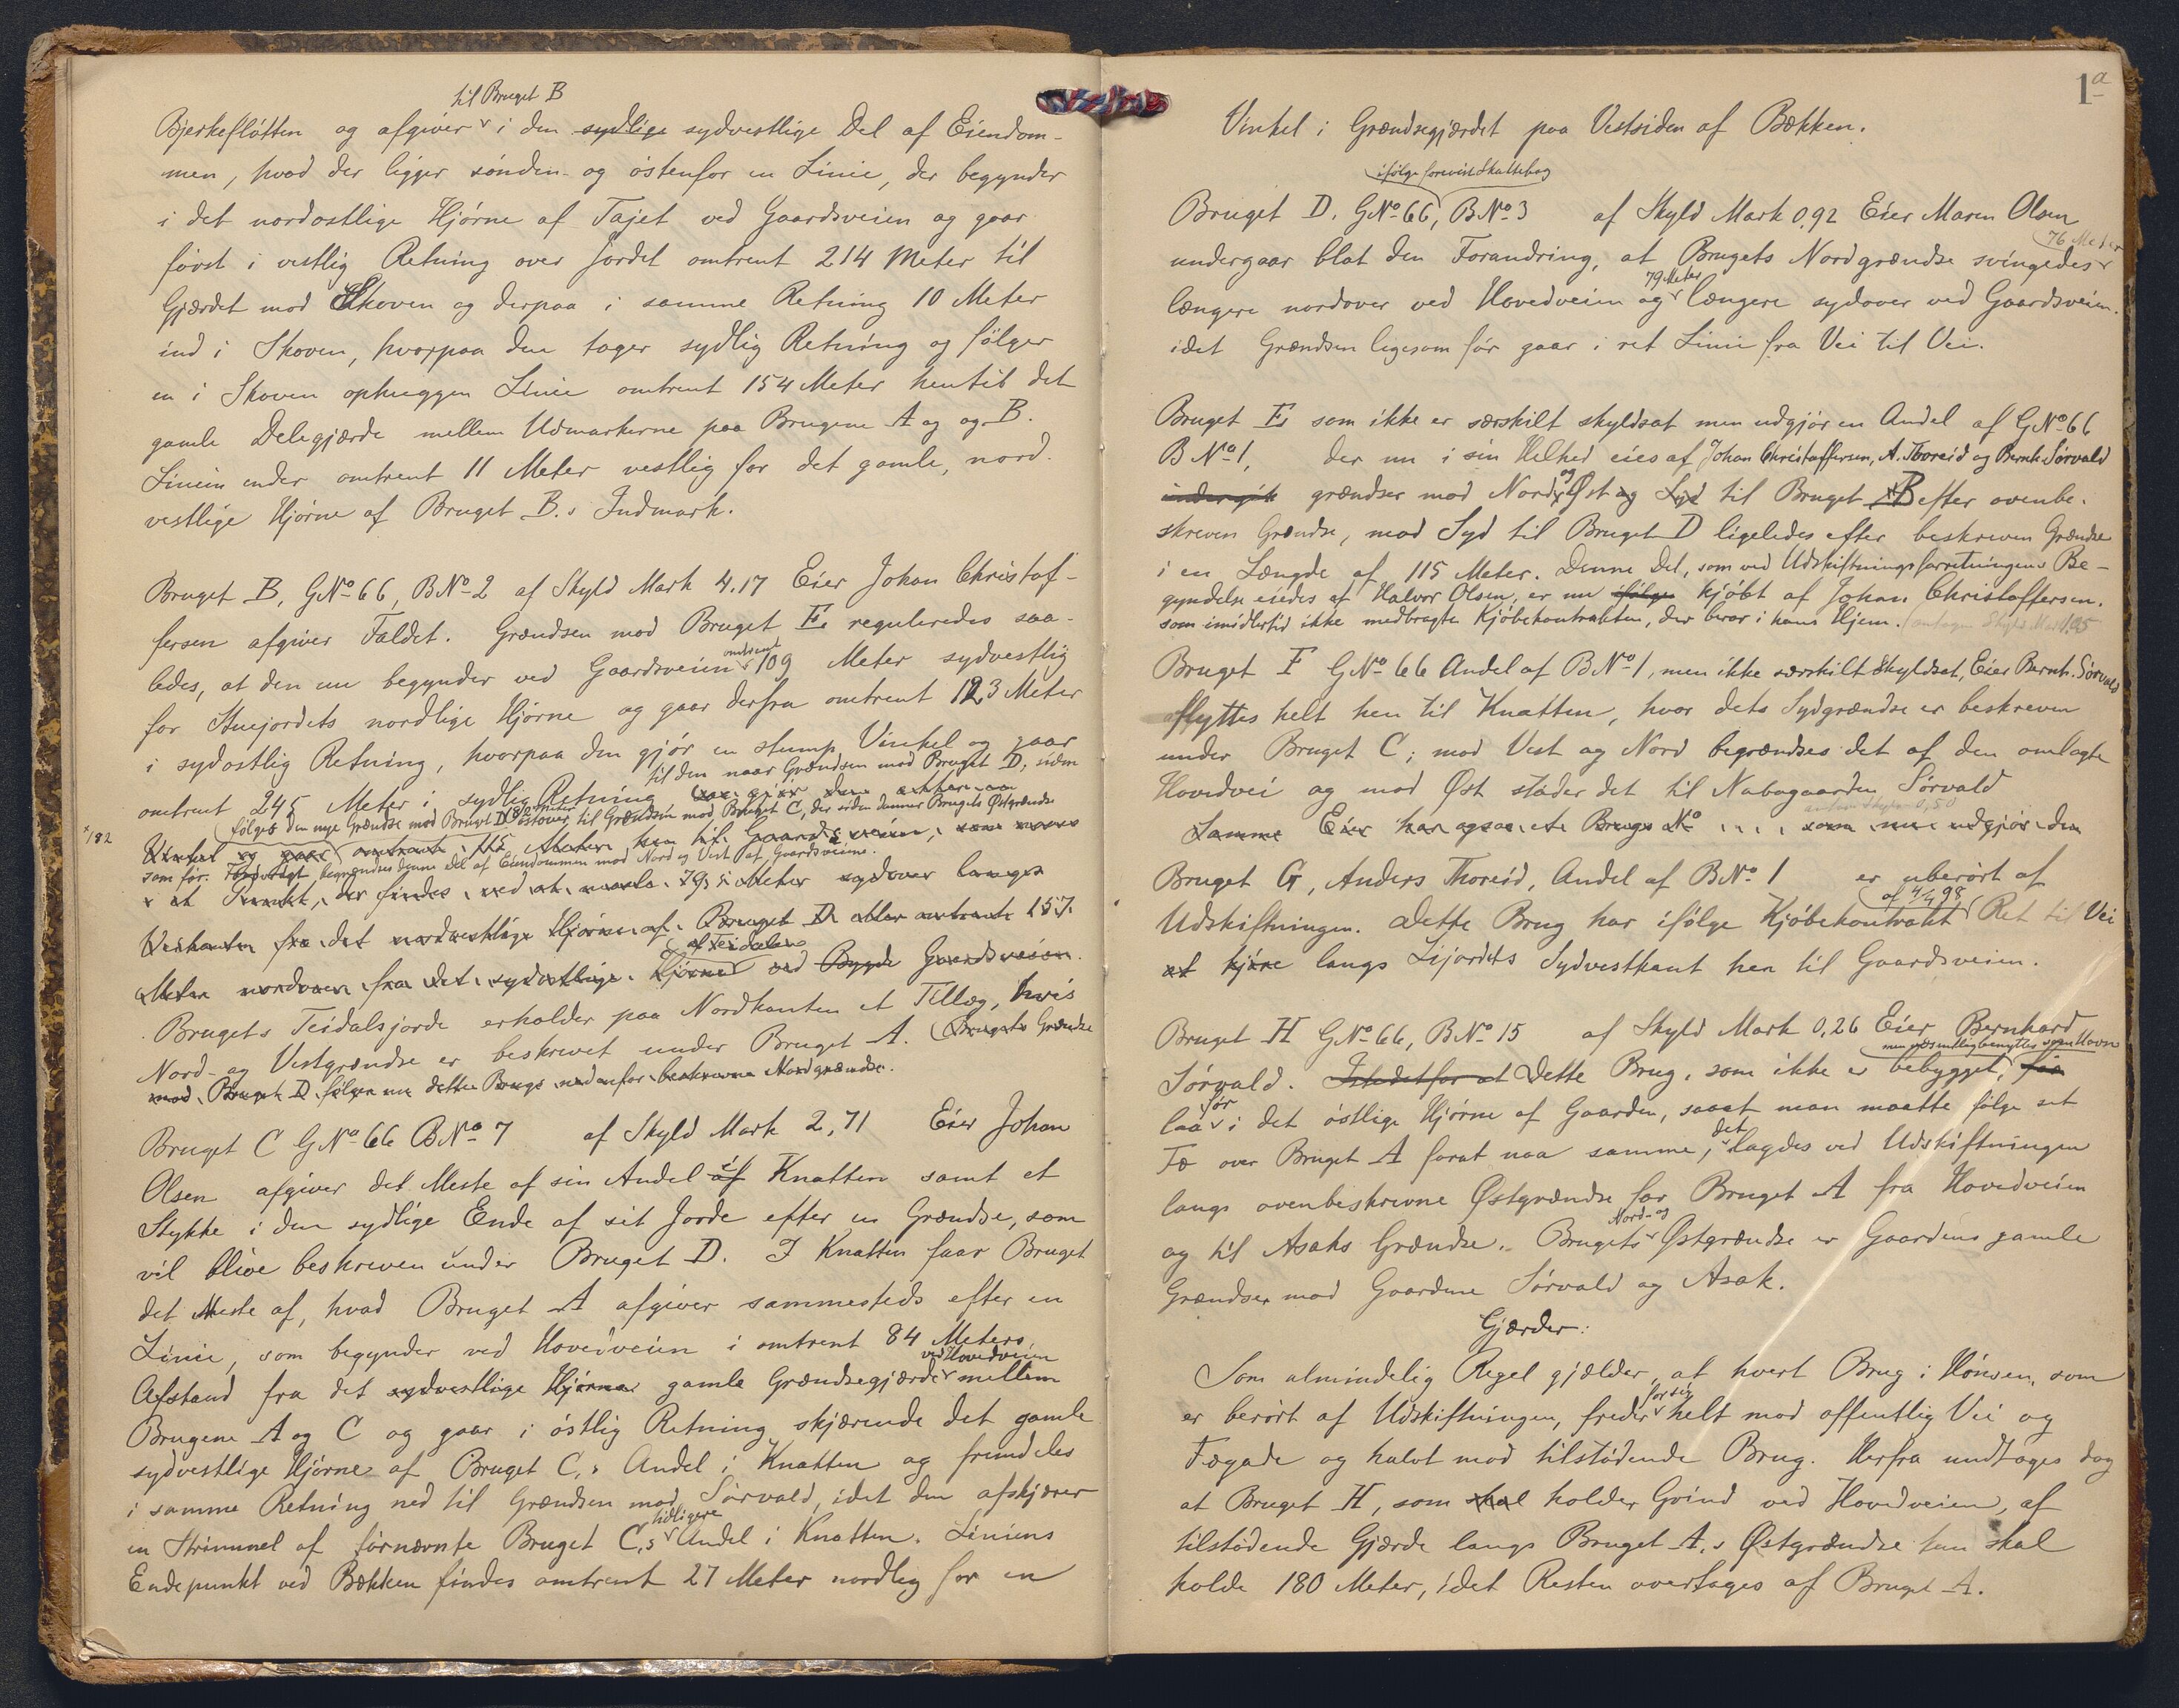 til Bruget B
Bjerkeflótten og afgiver i den sydlige sydvestlige Del af Eiendom-
men, hvad der ligger sónden- og óstenfor en Linie, der begynder
i det nordostlige Hjórne af Tajet ved Gaardsveien og gaar
fórst i vestlig Retning over Jordet omtrent 214 Meter til
Gjærdet mod Skoven og derpaa i samme Retning 10 Meter
ind i Skoven, hvorpaa den tager sydlig Retning og fólger
en i Skoven ophuggen Linie omtrent 154 Meter hentil det
gamle Delegjærde mellem Udmarkerne paa Brugene A og og B.
Linien ender omtrent 11 Meter vestlig for det gamle, nord-
vestlige Hjórne af Bruget B.s Indmark.
Bruget B, GNo 66, BNo 2 af Skyld Mark 4.17 Eier Johan Christof-
fersen afgiver Faldet. Grændsen mod Bruget E reguleredes saa-
ledes, at den nu begynder ved Gaardsveien omtrent 109 Meter sydvestlig
for Stuejordets nordlige Hjórne og gaar derfra omtrent 123 Meter
i sydostlig Retning, hvorpaa den gjór en stump Vinkel og gaar
til den naar Grændsen mod Bruget D, siden
omtrent 245 Meter i sydlig Retning
fólges den nye Grændse mod Bruget D óstover til Grændsen mod Bruget C, der siden danner Brugets Østgrændse
x 182
Vinkel og gaar omtrent 115 Meter hen til Gaardsveien, som
som fór. Forøvrigt begrændses denne Del af Eiendommen mod Nord og Vest af Gaardsveiene.
et Punkt, der findes ved at maale 79,5 Meter sydover langs
Veikanten fra det nordvestlige Hjórne af Bruget D eller omtrent 157
af Teidalen
Meter nordover fra det sydostlige Hjórne ved Bygde Gaardsveien.
Brugets Teidalsjorde erholder paa Nordkanten et Tillæg, hvis
Nord- og Vestgrændse er beskrevet under Bruget A. Brugets Grændse
mod Bruget D fólger nu dette Brugs nedenfor beskrevne Nordgrændse.
Bruget C GNo 66 BNo 7 af Skyld Mark 2,71 Eier Johan
Olsen afgiver det Meste af sin Andel i Knatten samt et
Stykke i den sydlige Ende af sit Jorde efter en Grændse, som
vil blive beskreven under Bruget D. I Knatten faar Bruget
det Meste af, hvad Bruget A afgiver sammesteds efter en
Linie, som begynder ved Hovedveien i omtrent 84 Meters
Afstand fra det sydvestlige Hjórne gamle Grændsegjærde ved Hovedveien mellem
Brugene A og C og gaar i óstlig Retning skjærende det gamle
sydvestlige Hjórne af Bruget C,s Andel i Knatten og fremdeles
i samme Retning ned til Grændsen mod Sórvald, idet den afskjærer
en Strimmel af fórnævnte Bruget C,s tidligere Andel i Knatten. Liniens
Endepunkt ved Bækken findes omtrent 27 Meter nordlig for en
1a
Vinkel i Grændsegjærdet paa Vestsiden af Bækken.
ifólge forevist Skattebog
Bruget D. GNo 66, BNo 3 af Skyld Mark 0,92 Eier Maren Olsen
undergaar blot den Forandring, at Brugets Nordgrændse svingedes 76 Meter
længere nordover ved Hovedveien og 79 Meter længere sydover ved Gaardsveien.
idet Grændsen ligesom fór gaar i ret Linie fra Vei til Vei.
Bruget E som ikke er særskilt skyldsat men udgjór en Andel af GNo 66
BNo 1, der nu i sin Helhed eies af Johan Christoffersen, A. Thoreid og Bernh. Sórvald
undergik grændser mod Nord og Øst og Syd til Bruget B efter ovenbe-
skreven Grændse, mod Syd til Bruget D ligeledes efter beskreven Grændse
i en Længde af 115 Meter. Denne Del, som ved Udskiftningsforretningens Be-
gyndelse eiedes af Halvor Olsen, er nu ifólge kjóbt af Johan Christoffersen.
som imidlertid ikke medbragte Kjóbekontrakten, der beror i hans Hjem. (antagen Skyld Mark 1,95
Bruget F GNo 66 Andel af BNo 1, men ikke særskilt Skyldsat, Eier Bernh. Sórvald
flyttes helt hen til Knatten, hvor dets Sydgrændse er beskreven
under Bruget C; mod Vest og Nord begrændses det af den omlagte
Hovedvei og mod Øst stóder det til Nabogaarden Sórvald
antagen Skyld 0,50
Samme Eier har ogsaa et Brugs No .... som nu udgjór den
Bruget G, Anders Thoreid, Andel af BNo 1 er uberórt af
Udskiftningen. Dette Brug har ifólge Kjóbekontrakt af 4/4 98 Ret til Vei
at kjóre langs Lijordets Sydvestkant hen til Gaardsveien.
Bruget H GNo 66, BNo 15 af Skyld Mark 0,26 Eier Bernhard
men væsentlig benyttes som Havn
Sórvald. Istedetfor at Dette Brug, som ikke er bebygget, faa
laa fór i det óstlige Hjórne af Gaarden, saaat man maatte fólge sit
Fæ over Bruget A forat naa samme, det lagdes ved Udskiftningen
langs ovenbeskrevne Østgrændse for Bruget A fra Hovedveien
og til Asaks Grændse. Brugets Nord- og Østgrændse er Gaardens gamle
Grændser mod Gaardene Sórvald og Asak.
Gjærder:
Som almindelig Regel gjælder, at hvert Brug i Hónsen, som
er berórt af Udskiftningen, freder for sig helt mod offentlig Vei og
Fægade og halvt mod tilstódende Brug. Herfra undtages dog
at Bruget H, som skal holder Grind ved Hovedveien, af
tilstódende Gjærde langs Bruget A,s Østgrændse kun skal
holde 180 Meter, idet Resten overtages af Bruget A.